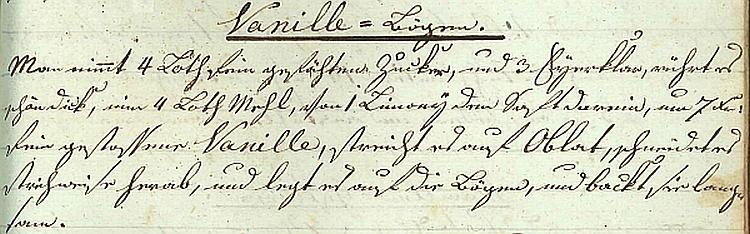 Vanille=Bögen.
Man nimmt 4 Loth fein gefähten Zucker, und 3 Eyerklar, rührt es
schön dick, nim 4 Loth Mehl, von 1 Limony den Saft darein, um 7 Xr:
fein gestossene Vanille, streicht es auf Oblat, schneidet es
strichweise herab, und legt es auf die Bögen, und backt sie lang=
sam.